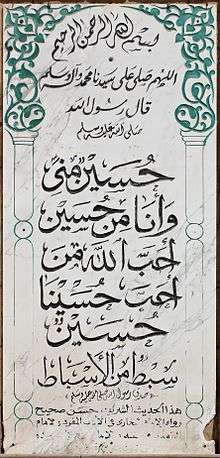 بسم الله الرحمن الرحيم
اللهم صلي على سيدنا محمد وآله وسلم
قال رسول الله
صلى الله عليه وسلم
حُسَيْنٌ مِنِّي
وَأَنَا مِنْ حُسَيْنٍ
أَحَبَّ اللَّهُ مَنْ
أَحَبَّ حُسَيْنًا
حُسَيْنٌ
سِبْطٌ مِنَ الأَسْبَاطِ
هذا الحديث الشريف حسن صحيح
رواه البخاري في الأدب المفرد